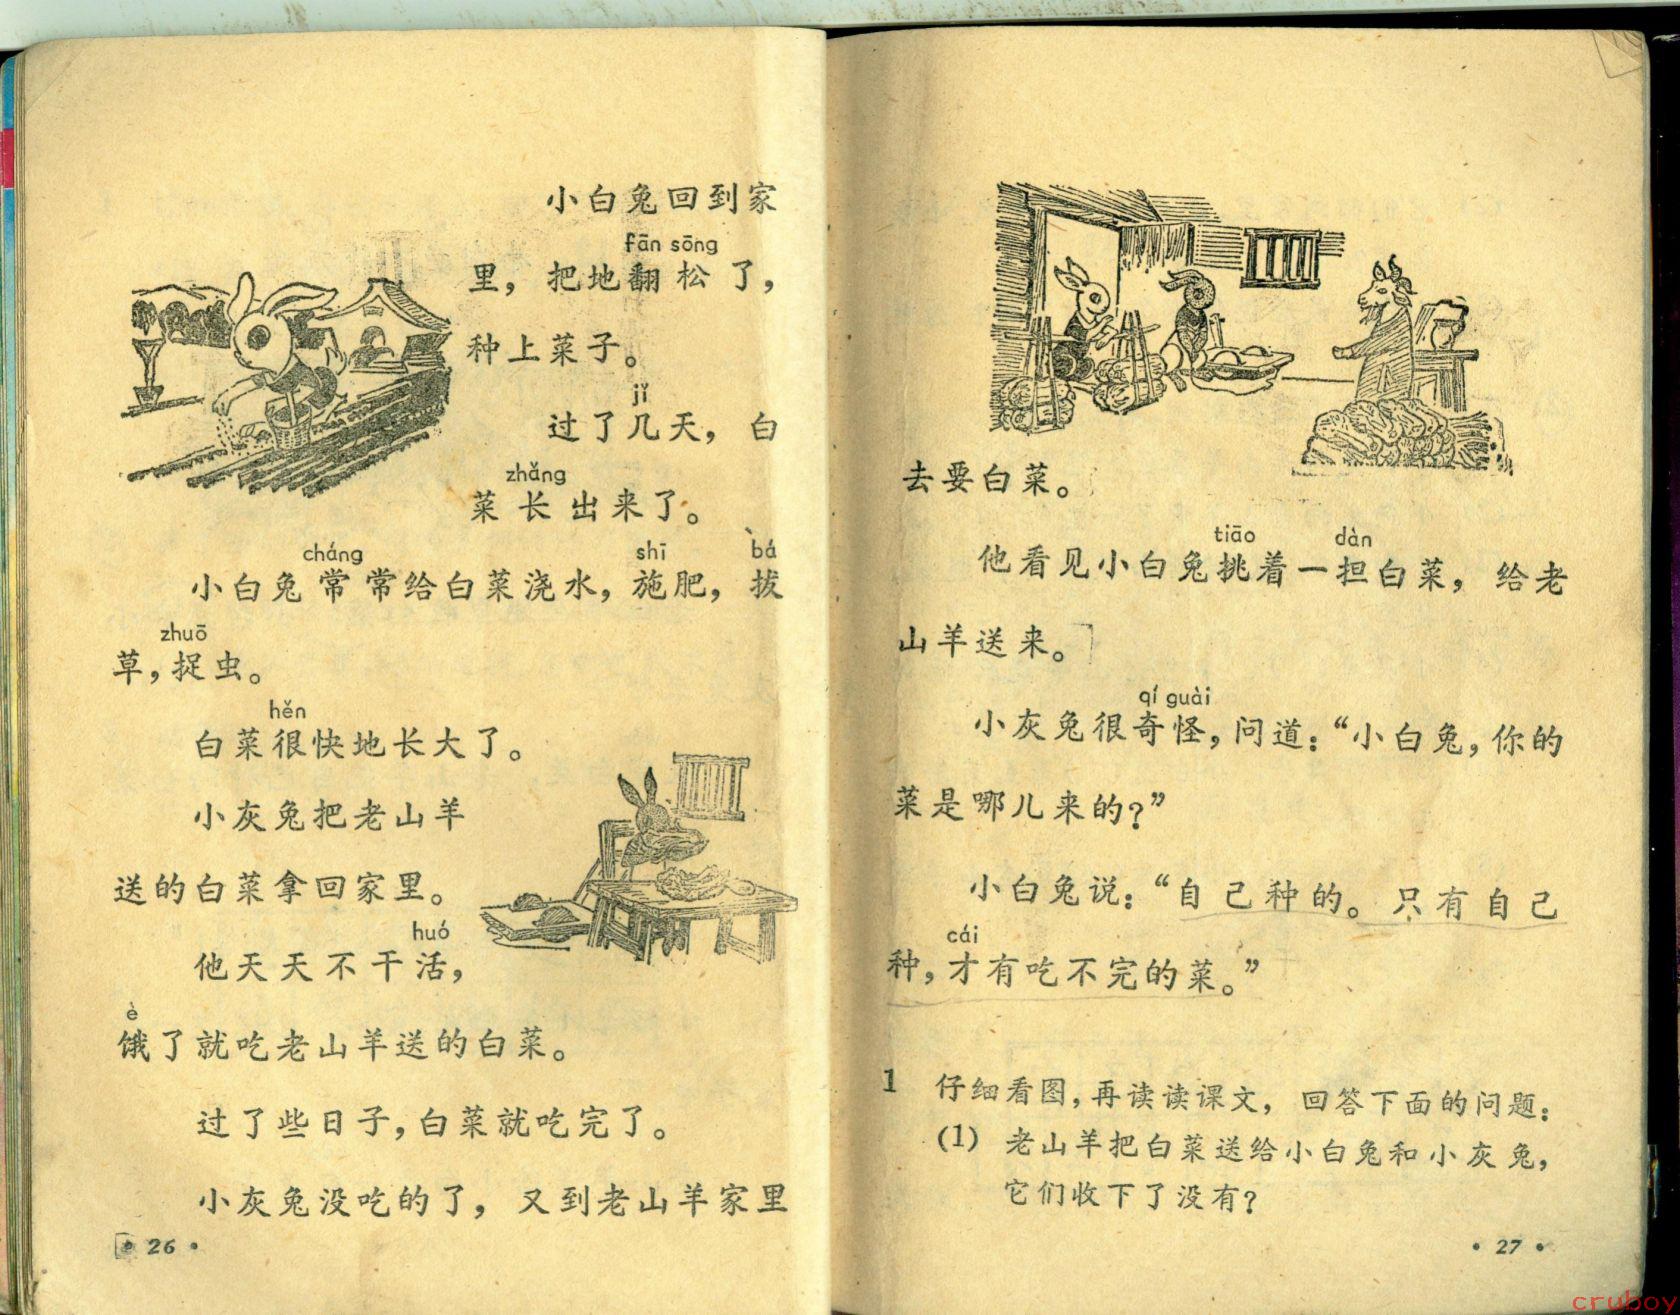 小白兔回到家
fān sōng
里，把地翻松了，
种上菜子。
jǐ
过了几天，白
zhǎng
菜长出来了。
cháng shī bá
小白兔常常给白菜浇水，施肥，拔
zhuō
草，捉虫。
hěn
白菜很快地长大了。
小灰兔把老山羊
送的白菜拿回家里。
huó
他天天不干活，
è
饿了就吃老山羊送的白菜。
过了些日子，白菜就吃完了。
小灰兔没吃的了，又到老山羊家里
• 26 •
去要白菜。
tiāo dàn
他看见小白兔挑着一担白菜，给老
山羊送来。
qí guài
小灰兔很奇怪，问道：“小白兔，你的
菜是哪儿来的？”
小白兔说：“自己种的。只有自己
cái
种，才有吃不完的菜。”
1 仔细看图，再读读课文，回答下面的问题：
(1) 老山羊把白菜送给小白兔和小灰兔，
它们收下了没有？
• 27 •
cruboy